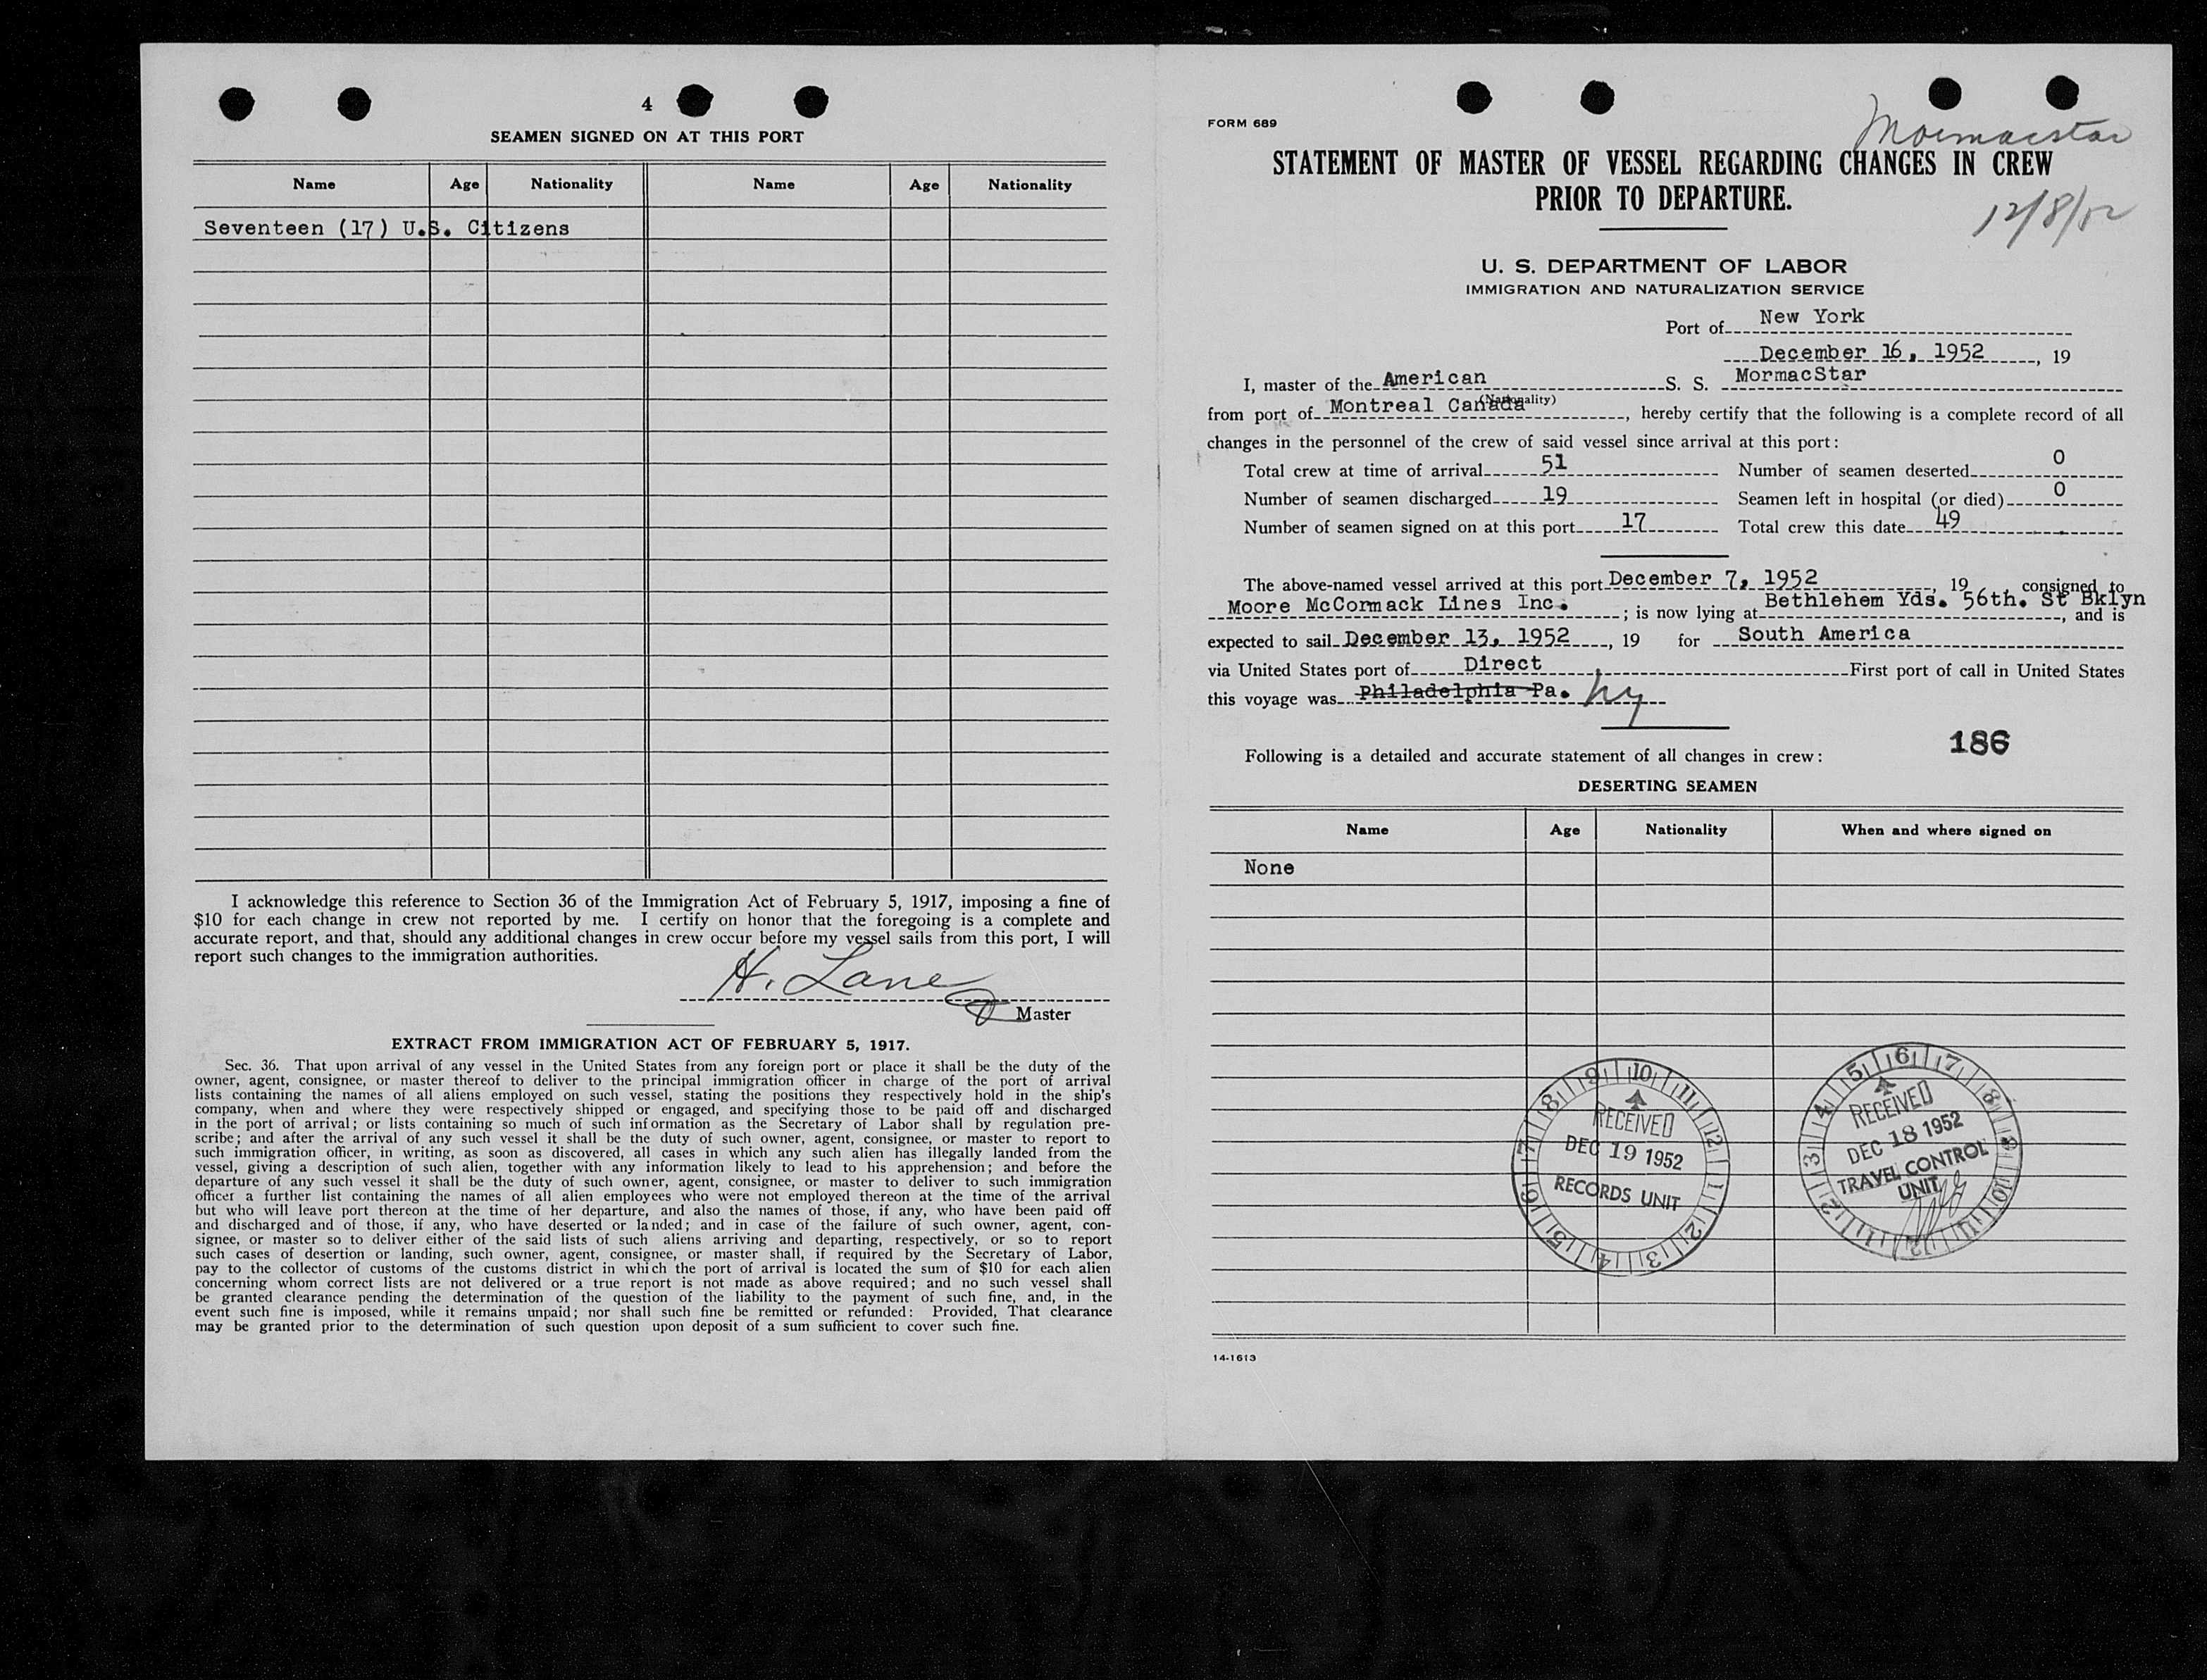 4
SEAMEN SIGNED ON AT THIS PORT
Name Age Nationality Name Age Nationality
Seventeen (17) U.S. Citizens
I acknowledge this reference to Section 36 of the Immigration Act of February 5, 1917, imposing a fine of
$10 for each change in crew not reported by me. I certify on honor that the foregoing is a complete and
accurate report, and that, should any additional changes in crew occur before my vessel sails from this port, I will
report such changes to the immigration authorities.
H. Lane
Master
EXTRACT FROM IMMIGRATION ACT OF FEBRUARY 5, 1917.
Sec. 36. That upon arrival of any vessel in the United States from any foreign port or place it shall be the duty of the
owner, agent, consignee, or master thereof to deliver to the principal immigration officer in charge of the port of arrival
lists containing the names of all aliens employed on such vessel, stating the positions they respectively hold in the ship's
company, when and where they were respectively shipped or engaged, and specifying those to be paid off and discharged
in the port of arrival; or lists containing so much of such information as the Secretary of Labor shall by regulation pre-
scribe; and after the arrival of any such vessel it shall be the duty of such owner, agent, consignee, or master to report to
such immigration officer, in writing, as soon as discovered, all cases in which any such alien has illegally landed from the
vessel, giving a description of such alien, together with any information likely to lead to his apprehension; and before the
departure of any such vessel it shall be the duty of such owner, agent, consignee, or master to deliver to such immigration
officer a further list containing the names of all alien employees who were not employed thereon at the time of the arrival
but who will leave port thereon at the time of her departure, and also the names of those, if any, who have been paid off
and discharged and of those, if any, who have deserted or landed; and in case of the failure of such owner, agent, con-
signee, or master so to deliver either of the said lists of such aliens arriving and departing, respectively, or so to report
such cases of desertion or landing, such owner, agent, consignee, or master shall, if required by the Secretary of Labor,
pay to the collector of customs of the customs district in which the port of arrival is located the sum of $10 for each alien
concerning whom correct lists are not delivered or a true report is not made as above required; and no such vessel shall
be granted clearance pending the determination of the question of the liability to the payment of such fine, and, in the
event such fine is imposed, while it remains unpaid; nor shall such fine be remitted or refunded: Provided, That clearance
may be granted prior to the determination of such question upon deposit of a sum sufficient to cover such fine.
FORM 689
Mormacstar
STATEMENT OF MASTER OF VESSEL REGARDING CHANGES IN CREW
PRIOR TO DEPARTURE.
12/8/52
U. S. DEPARTMENT OF LABOR
IMMIGRATION AND NATURALIZATION SERVICE
Port of New York
December 16, 1952, 19
I, master of the American S. S. MormacStar
(Nationality)
from port of Montreal Canada, hereby certify that the following is a complete record of all
changes in the personnel of the crew of said vessel since arrival at this port:
Total crew at time of arrival 51 Number of seamen deserted 0
Number of seamen discharged 19 Seamen left in hospital (or died) 0
Number of seamen signed on at this port 17 Total crew this date 49
The above-named vessel arrived at this port December 7, 1952, 19 , consigned to
Moore McCormack Lines Inc. ; is now lying at Bethlehem Yds. 56th. St Bklyn, and is
expected to sail December 13, 1952, 19 for South America
via United States port of Direct First port of call in United States
this voyage was Philadelphia Pa. Ny
186
Following is a detailed and accurate statement of all changes in crew:
DESERTING SEAMEN
Name Age Nationality When and where signed on
None
9 10 11 12 1 2 3 4 5 6 7 8
RECEIVED
DEC 19 1952
RECORDS UNIT
5 6 7 8 9 10 11 12 1 2 3 4
RECEIVED
DEC 18 1952
TRAVEL CONTROL
UNIT
14-1613